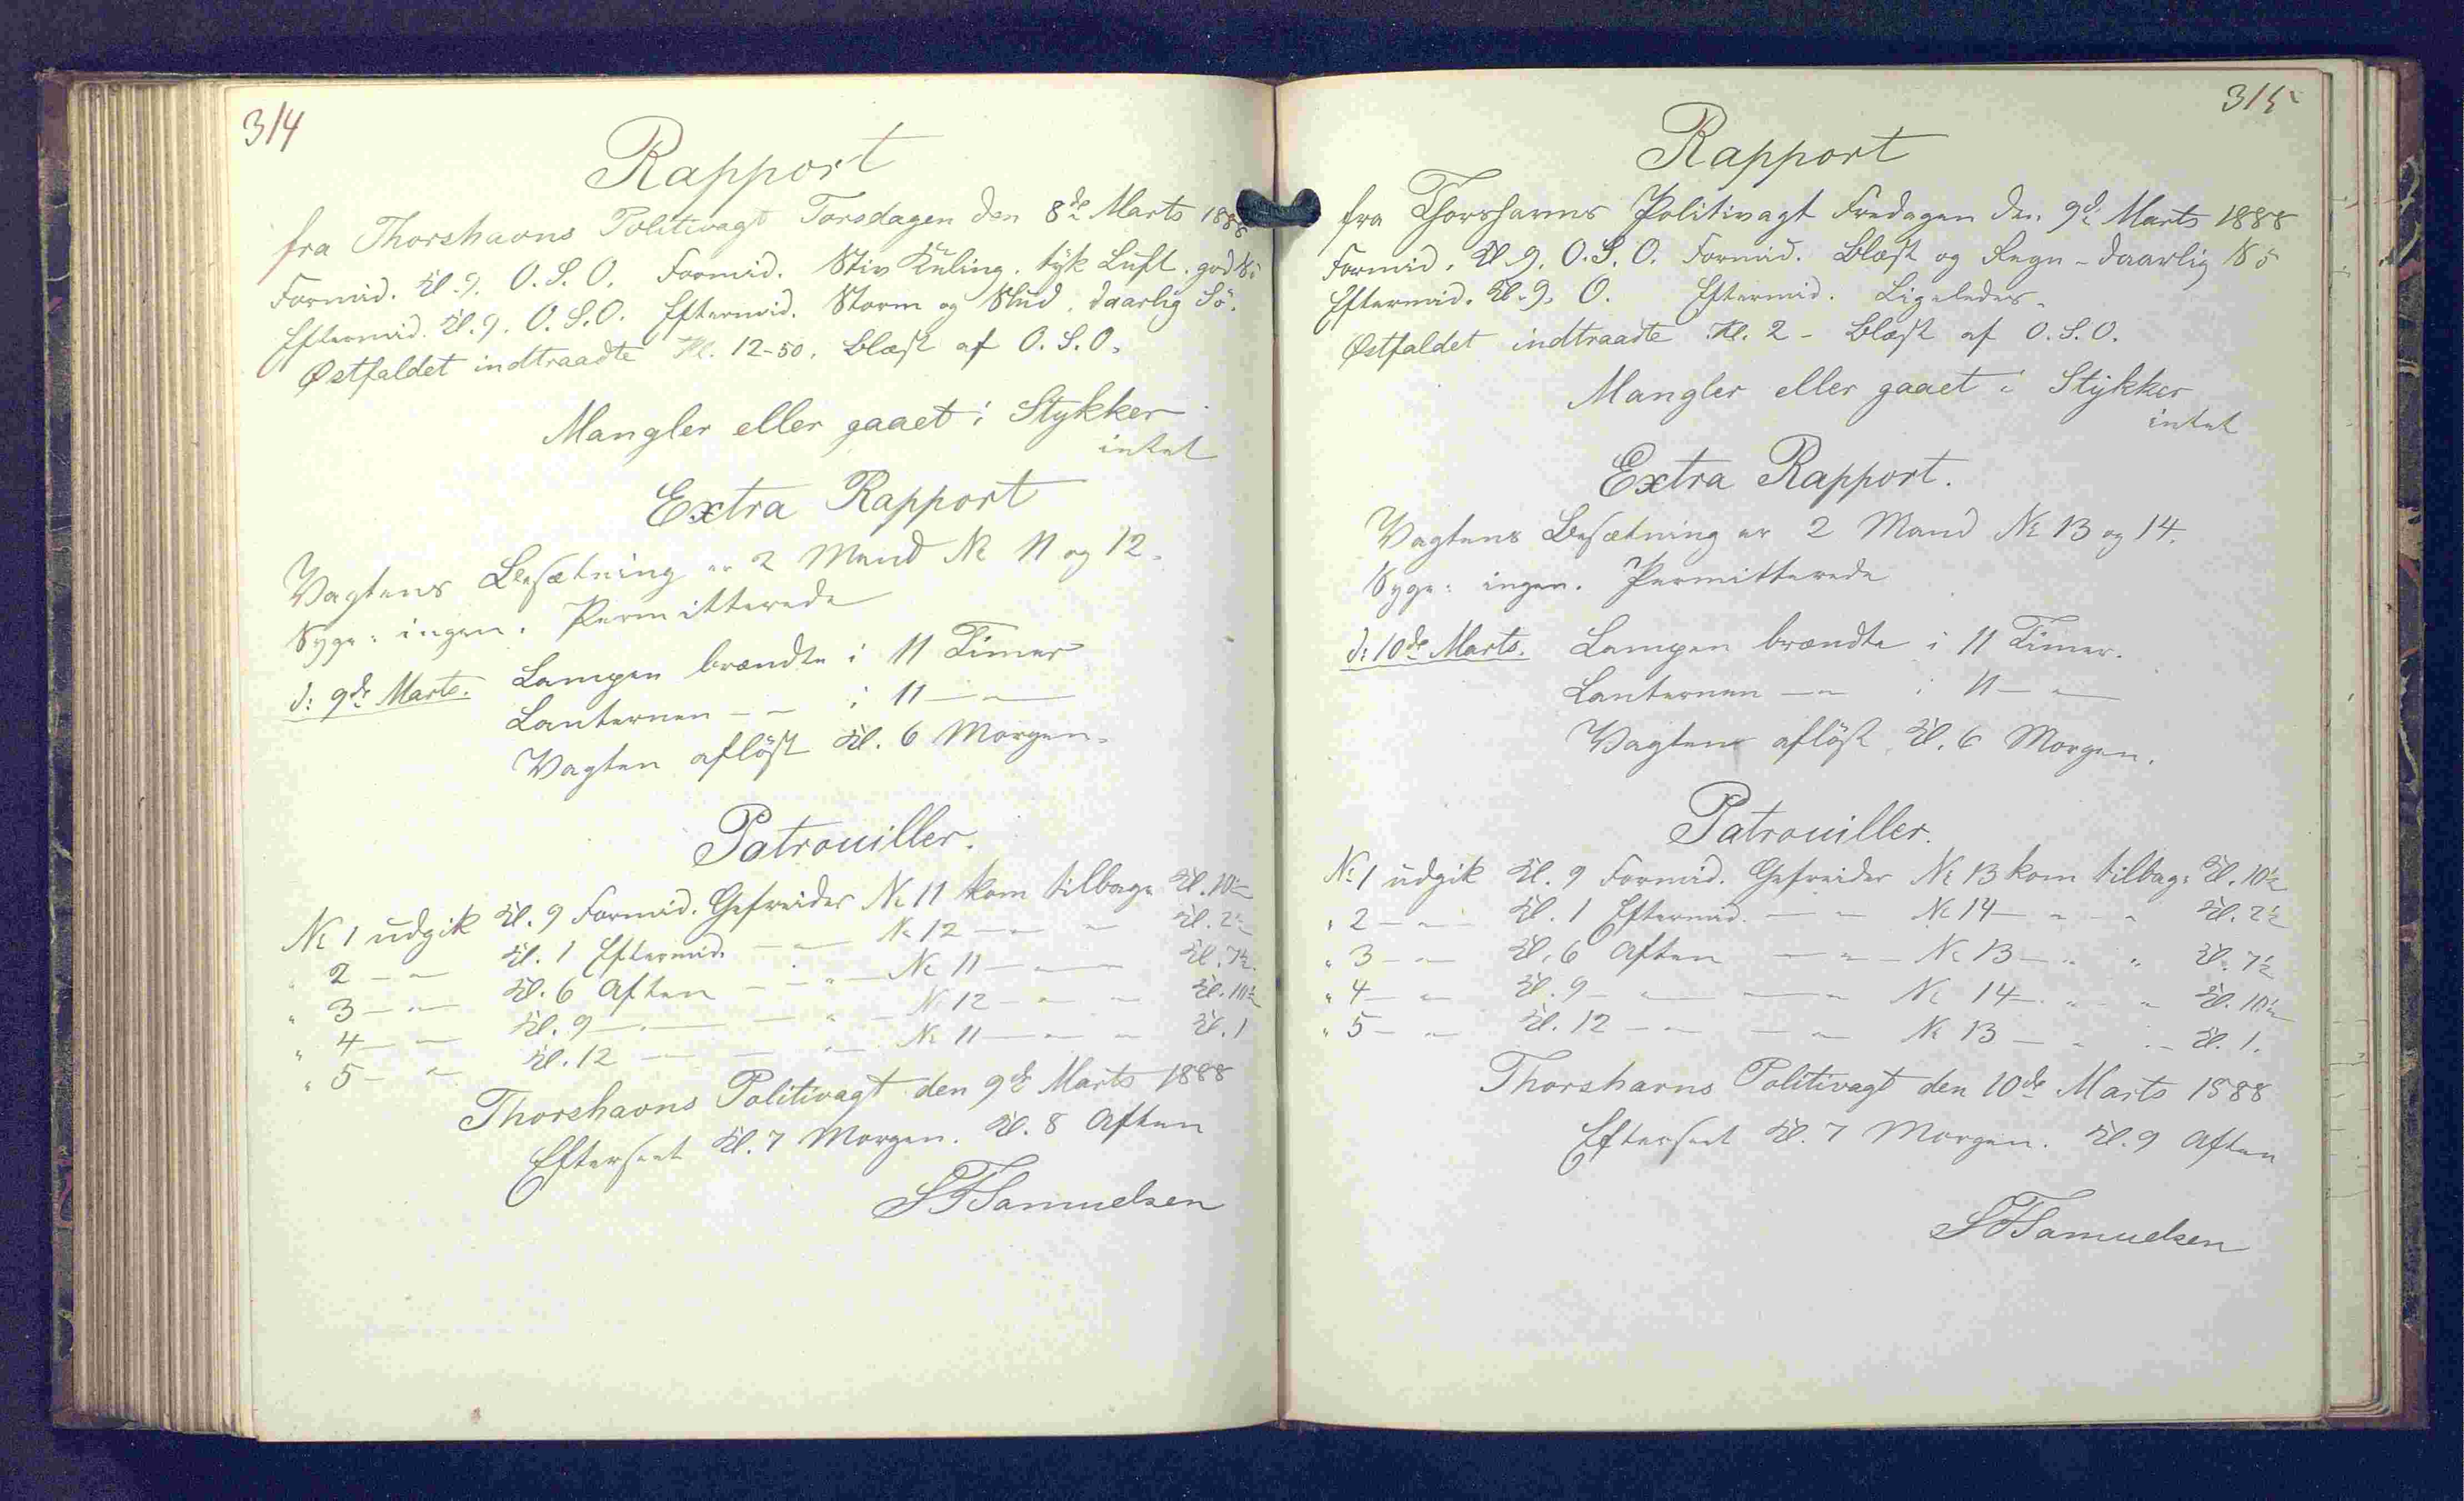 314
Rapport
fra Thorshavns Politivagt Torsdagen den 8de Marts 1888
Formid. Kl. 9. O.S.O. Formid. Stiv Kuling. tyk Luft. god Sö
Eftermid. Kl. 9. O.S.O. Eftermid. Storm og Slud. daarlig Sö.
Østfaldet indtraadte Kl. 12-50. Blæst af O.S.O.
Mangler eller gaaet i Stykker
intet
Extra Rapport
Vagtens Besætning er 2 Mand No 11 og 12.
Syge: ingen. Permitterede
d: 9de Marts. Lampen brændte i 11 Timer
Lanternen — " i 11 — " —
Vagten aflöst Kl. 6 Morgen.
Patrouiller.
No 1 udgik Kl. 9 Formid. Gefreider No 11 kom tilbage Kl. 10½
" 2 — " Kl. 1 Eftermid. — " — No 12 — " — " Kl. 2½
" 3 — " — Kl. 6 Aften — " — No 11 — " — Kl. 7½.
" 4 — " Kl. 9 — " — — " — No 12 — " — " Kl. 10½
" 5 — " Kl. 12 — " — " — No 11 — " — " Kl. 1
Thorshavns Politivagt den 9de Marts 1888
Efterseet Kl. 7 Morgen. Kl. 8 Aften
SFSamuelsen
315
Rapport
fra Thorshavns Politivagt Fredagen den 9de Marts 1888
Formid. Kl. 9. O.S.O. Formid. Blæst og Regn - daarlig Sö
Eftermid. Kl. 9. O. Eftermid. Ligeledes.
Østfaldet indtraadte Kl. 2 - Blæst af O.S.O.
Mangler eller gaaet i Stykker
intet
Extra Rapport.
Vagtens Besætning er 2 Mand No 13 og 14.
Syge: ingen. Permitterede
d: 10de Marts. Lampen brændte i 11 Timer.
Lanternen — " i 11 — " —
Vagten aflöst Kl. 6 Morgen.
Patrouiller.
No 1 udgik Kl. 9 Formid. Gefreider No 13 kom tilbage Kl. 10½
" 2 — " — Kl. 1 Eftermid. — " No 14 — " — " Kl. 2½
" 3 — " Kl. 6 Aften — " — No 13 — " " Kl. 7½
" 4 — " Kl. 9 — " — " No 14 — " — " Kl. 10½
" 5 — " Kl. 12 — " — " No 13 — " — Kl. 1.
Thorshavns Politivagt den 10de Marts 1888
Efterseet Kl. 7 Morgen. Kl. 9 Aften
SFSamuelsen